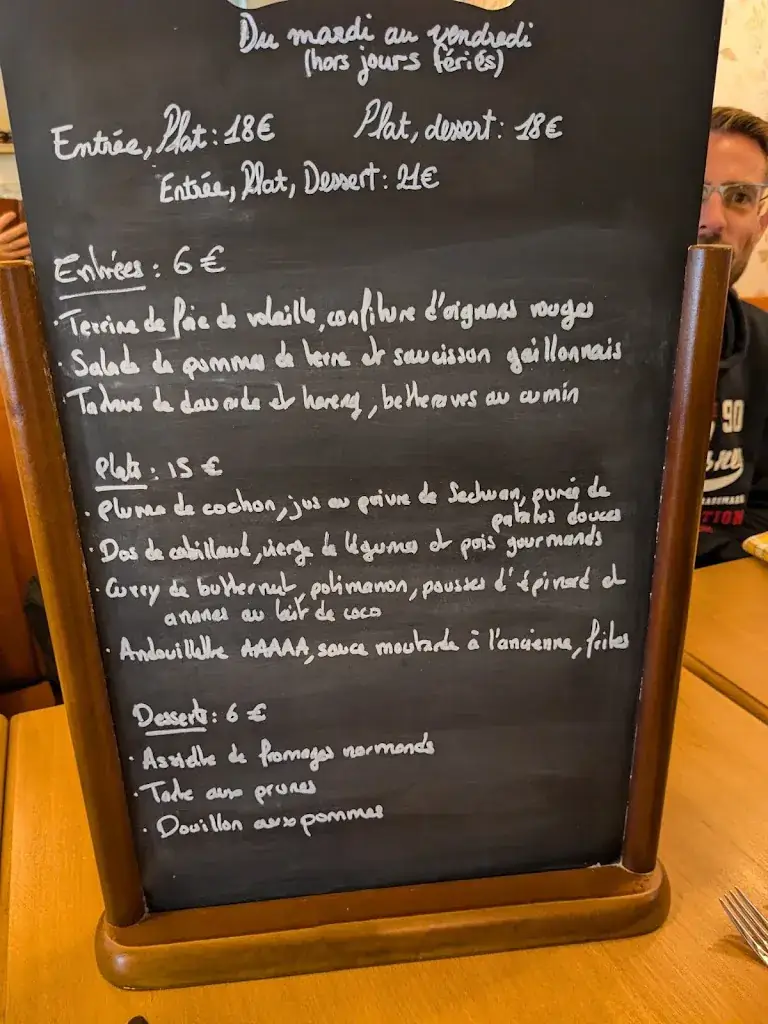 Du mardi au vendredi
(hors jours fériés)
Entrée, Plat : 18€ Plat, dessert : 18€
Entrée, Plat, Dessert : 21€
Entrées : 6 €
· Terrine de foie de volaille, confiture d'oignons rouges
· Salade de pommes de terre et saucisson gaillonnais
· Tartare de daurade et hareng, betteraves au cumin
Plats : 15 €
· Pluma de cochon, jus au poivre de Sechuan, purée de
patates douces
· Dos de cabillaud, vierge de légumes et pois gourmands
· Curry de butternut, potimarron, pousses d'épinard et
ananas au lait de coco
· Andouillette AAAAA, sauce moutarde à l'ancienne, frites
Desserts : 6 €
· Assiette de fromages normands
· Tarte aux prunes
· Douillon aux pommes
90
TION